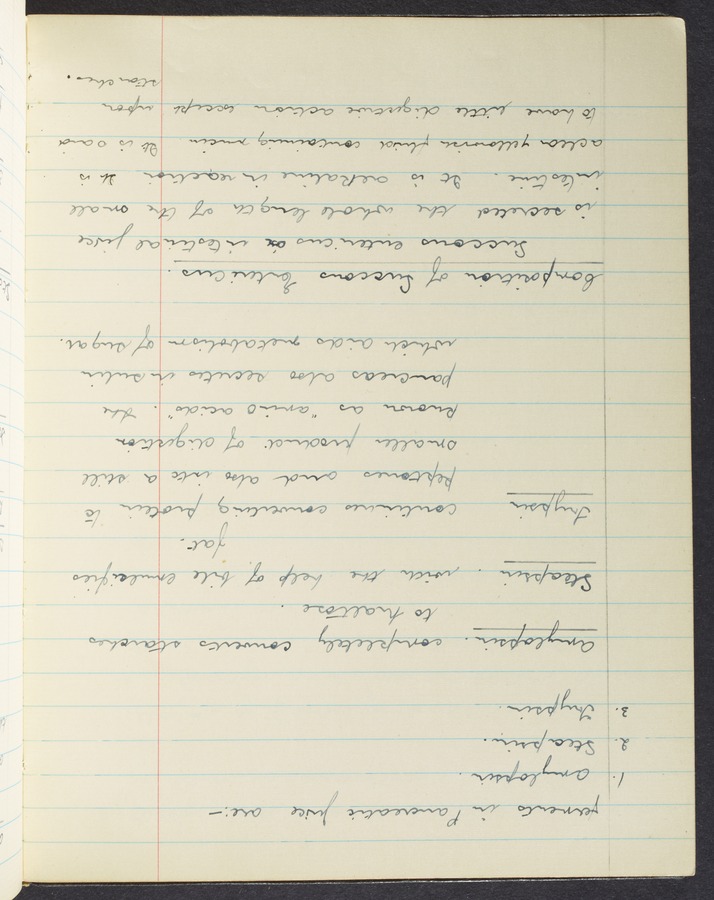 ferments in Pancreatic juice are:-
1. Amylopsin.
2. Steapsin.
3. Trypsin.
Amylopsin. completely converts starches
to maltose.
Steapsin. with the help of bile emulsifies
fat.
Trypsin continues converting protein to
peptones and also into a still
smaller product of digestion
known as "amino acids". The
pancreas also secretes insulin
which aids metabolism of sugar.
Composition of Succus Entericus.
Succus entericus or intestinal juice
is secreted the whole length of the small
intestine. It is alkaline in reaction It is
a clear yellowish fluid containing mucin It is said
to have little digestive action except upon
starches.